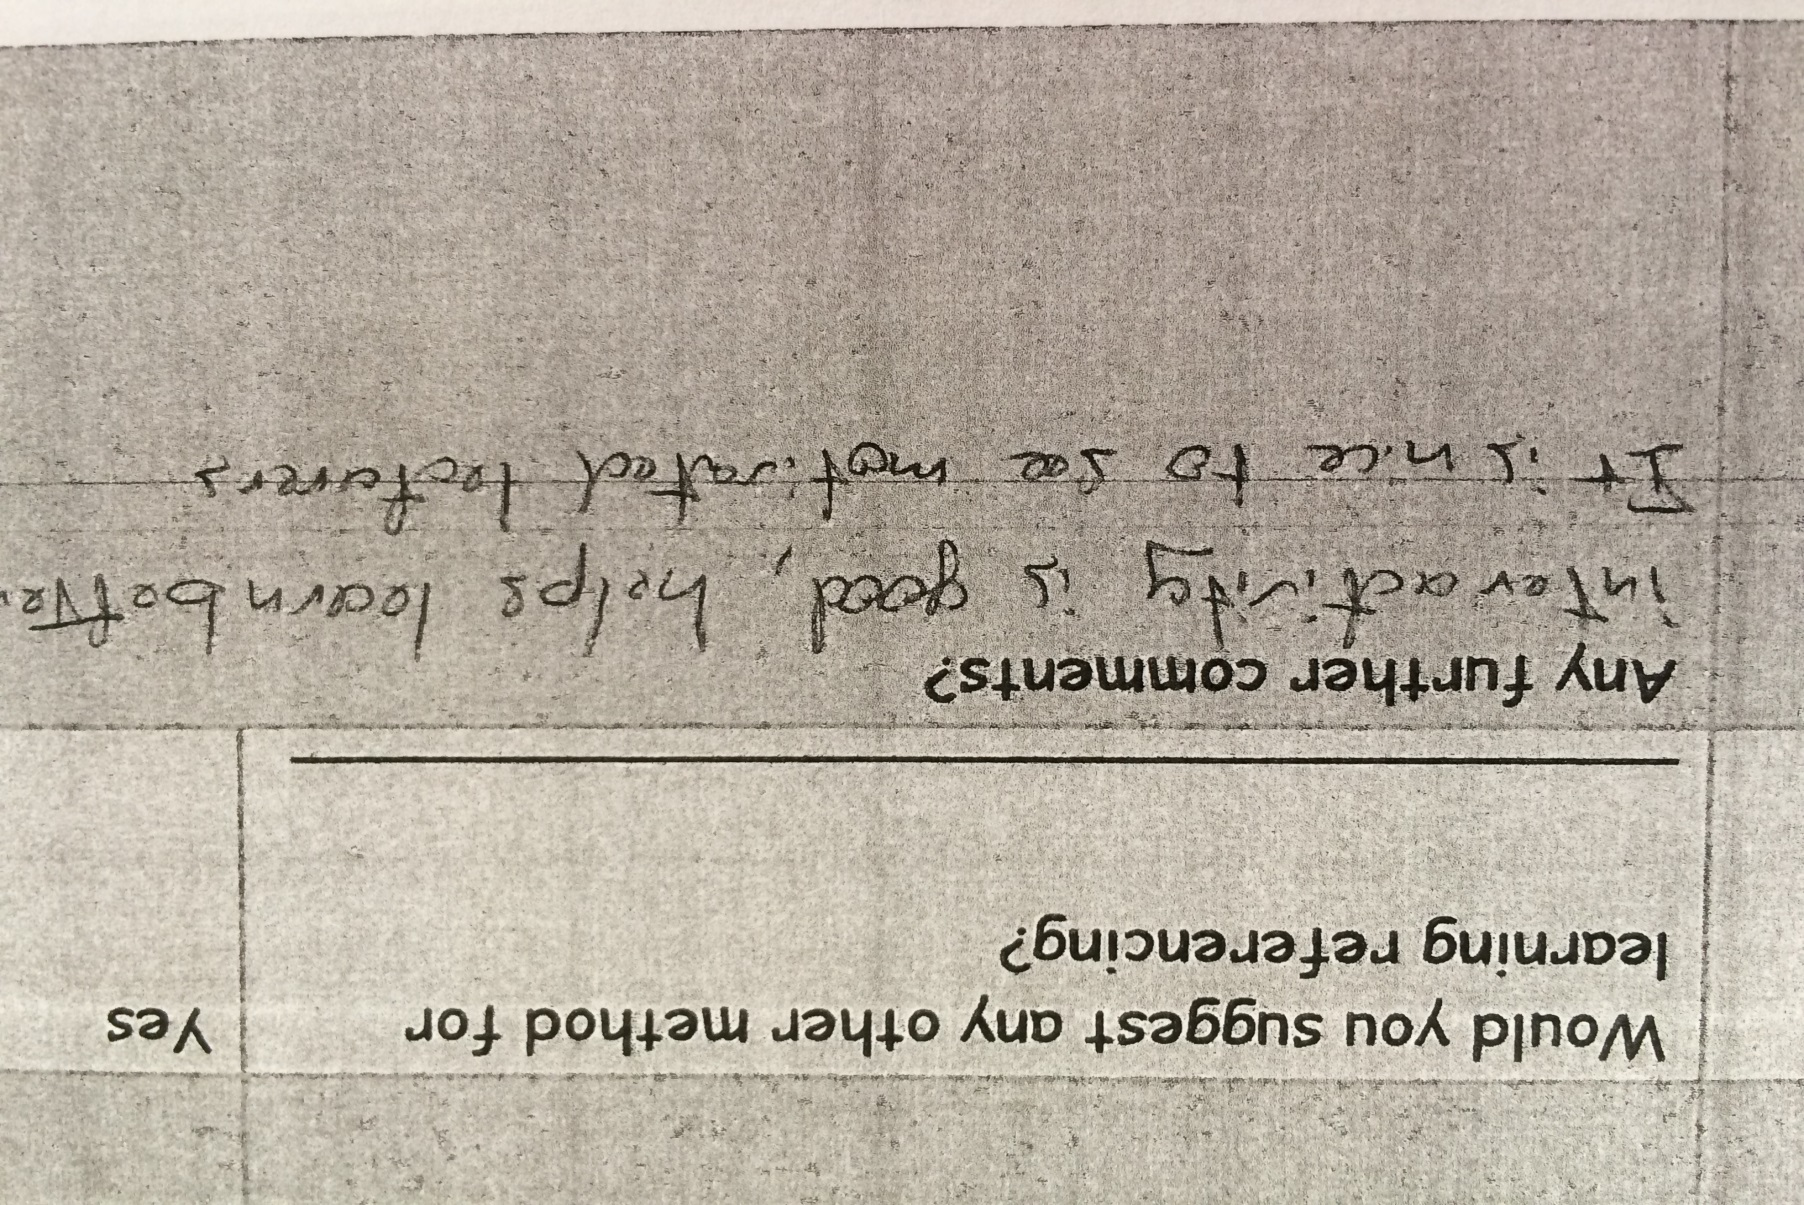 Would you suggest any other method for
learning referencing?
Yes
Any further comments?
interactivity is good, helps learn better.
It is nice to see motivated lecturers